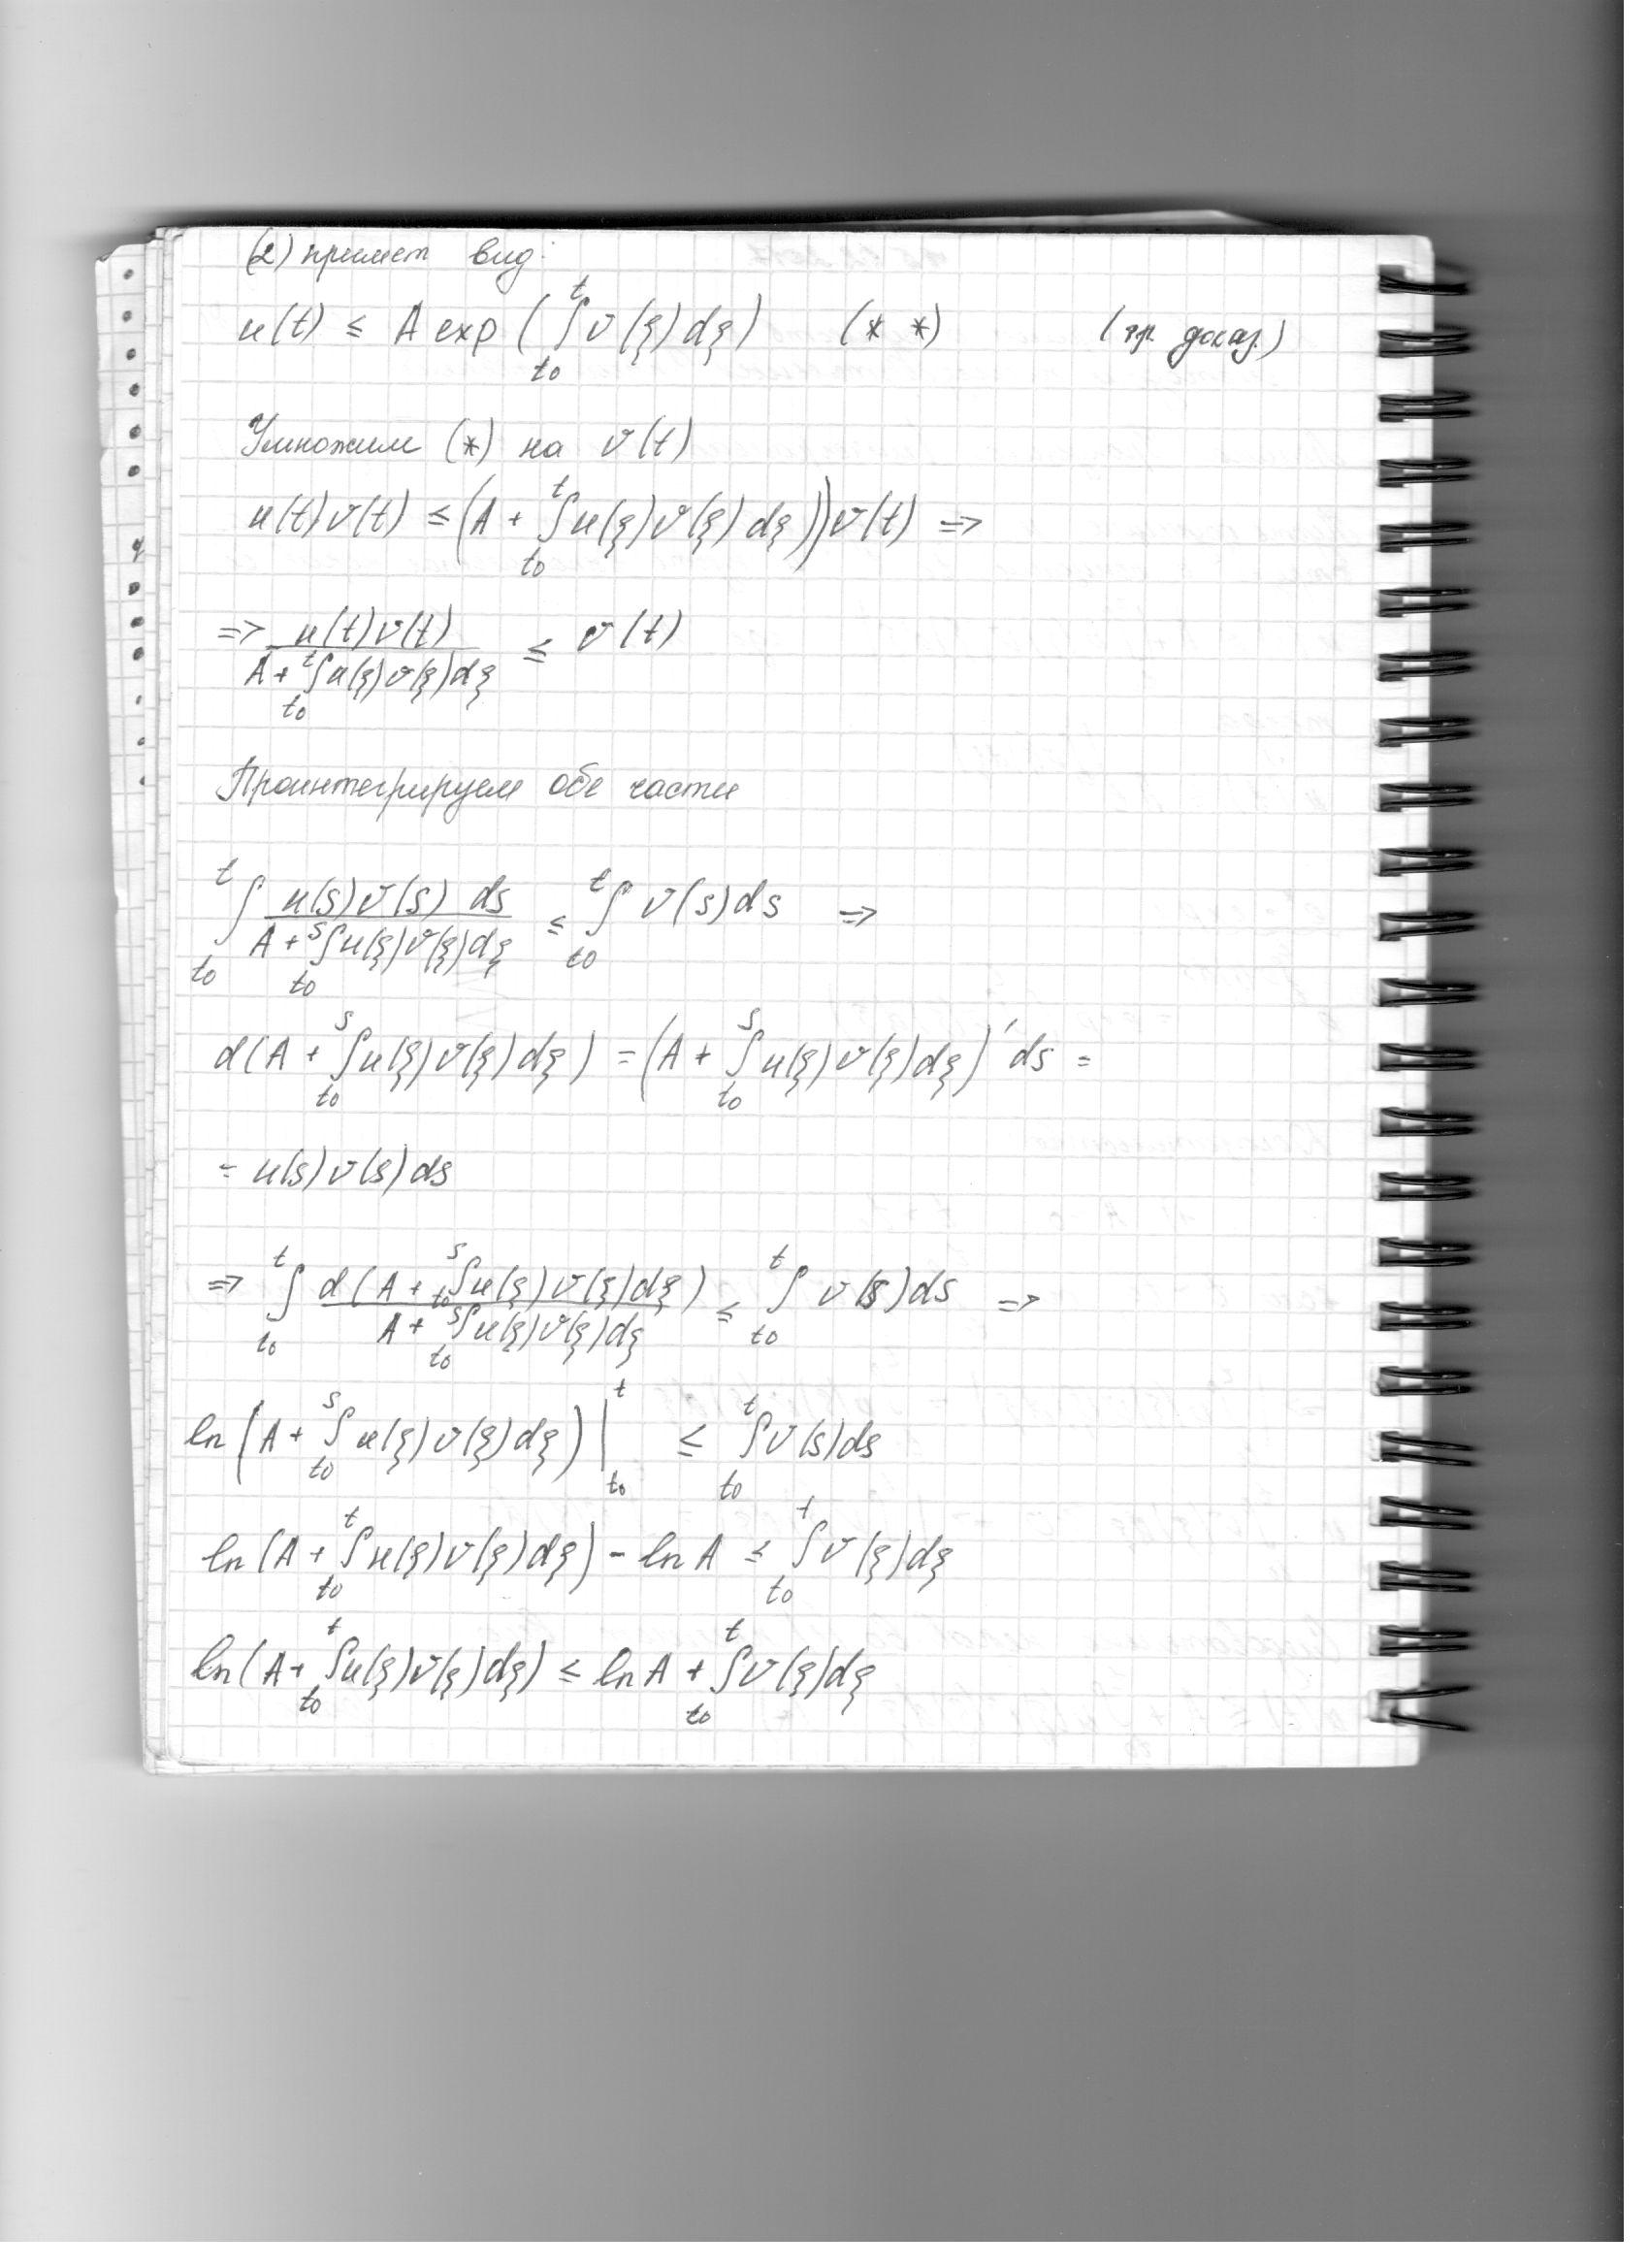 (2) примет вид:
u(t) ≤ A exp ( ∫_{t_0}^{t} v(ξ) dξ ) (* *) (тр. доказ.)
Умножим (*) на v(t)
u(t) v(t) ≤ (A + ∫_{t_0}^{t} u(ξ) v(ξ) dξ)) v(t) =>
=> \frac{u(t) v(t)}{A + ∫_{t_0}^{t} u(ξ) v(ξ) dξ} ≤ v(t)
Проинтегрируем обе части
∫_{t_0}^{t} \frac{u(s) v(s) ds}{A + ∫_{t_0}^{s} u(ξ) v(ξ) dξ} ≤ ∫_{t_0}^{t} v(s) ds =>
d(A + ∫_{t_0}^{s} u(ξ) v(ξ) dξ) = (A + ∫_{t_0}^{s} u(ξ) v(ξ) dξ)' ds =
= u(s) v(s) ds
=> ∫_{t_0}^{t} \frac{d(A + ∫_{t_0}^{s} u(ξ) v(ξ) dξ)}{A + ∫_{t_0}^{s} u(ξ) v(ξ) dξ} ≤ ∫_{t_0}^{t} v(s) ds =>
ln (A + ∫_{t_0}^{s} u(ξ) v(ξ) dξ) |_{t_0}^{t} ≤ ∫_{t_0}^{t} v(s) ds
ln (A + ∫_{t_0}^{t} u(ξ) v(ξ) dξ) - ln A ≤ ∫_{t_0}^{t} v(ξ) dξ
ln (A + ∫_{t_0}^{t} u(ξ) v(ξ) dξ) ≤ ln A + ∫_{t_0}^{t} v(ξ) dξ